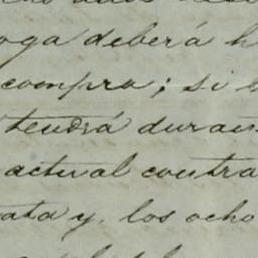 oga deberá h
compra; si
tendrá duran
actual contra
ata y, los ocho